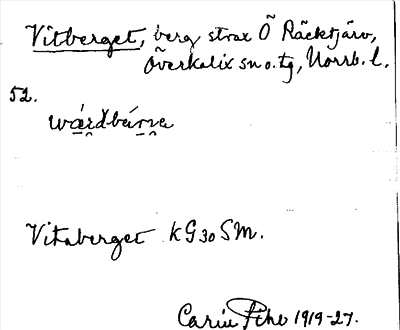 Vitberget, berg strax Ö Räcktjärv,
Överkalix sn o. tg, Norrb. l.
52.
wá̱rdbé̱rne
Vitaberget KG30SM.
Carin Pihl 1919-27.